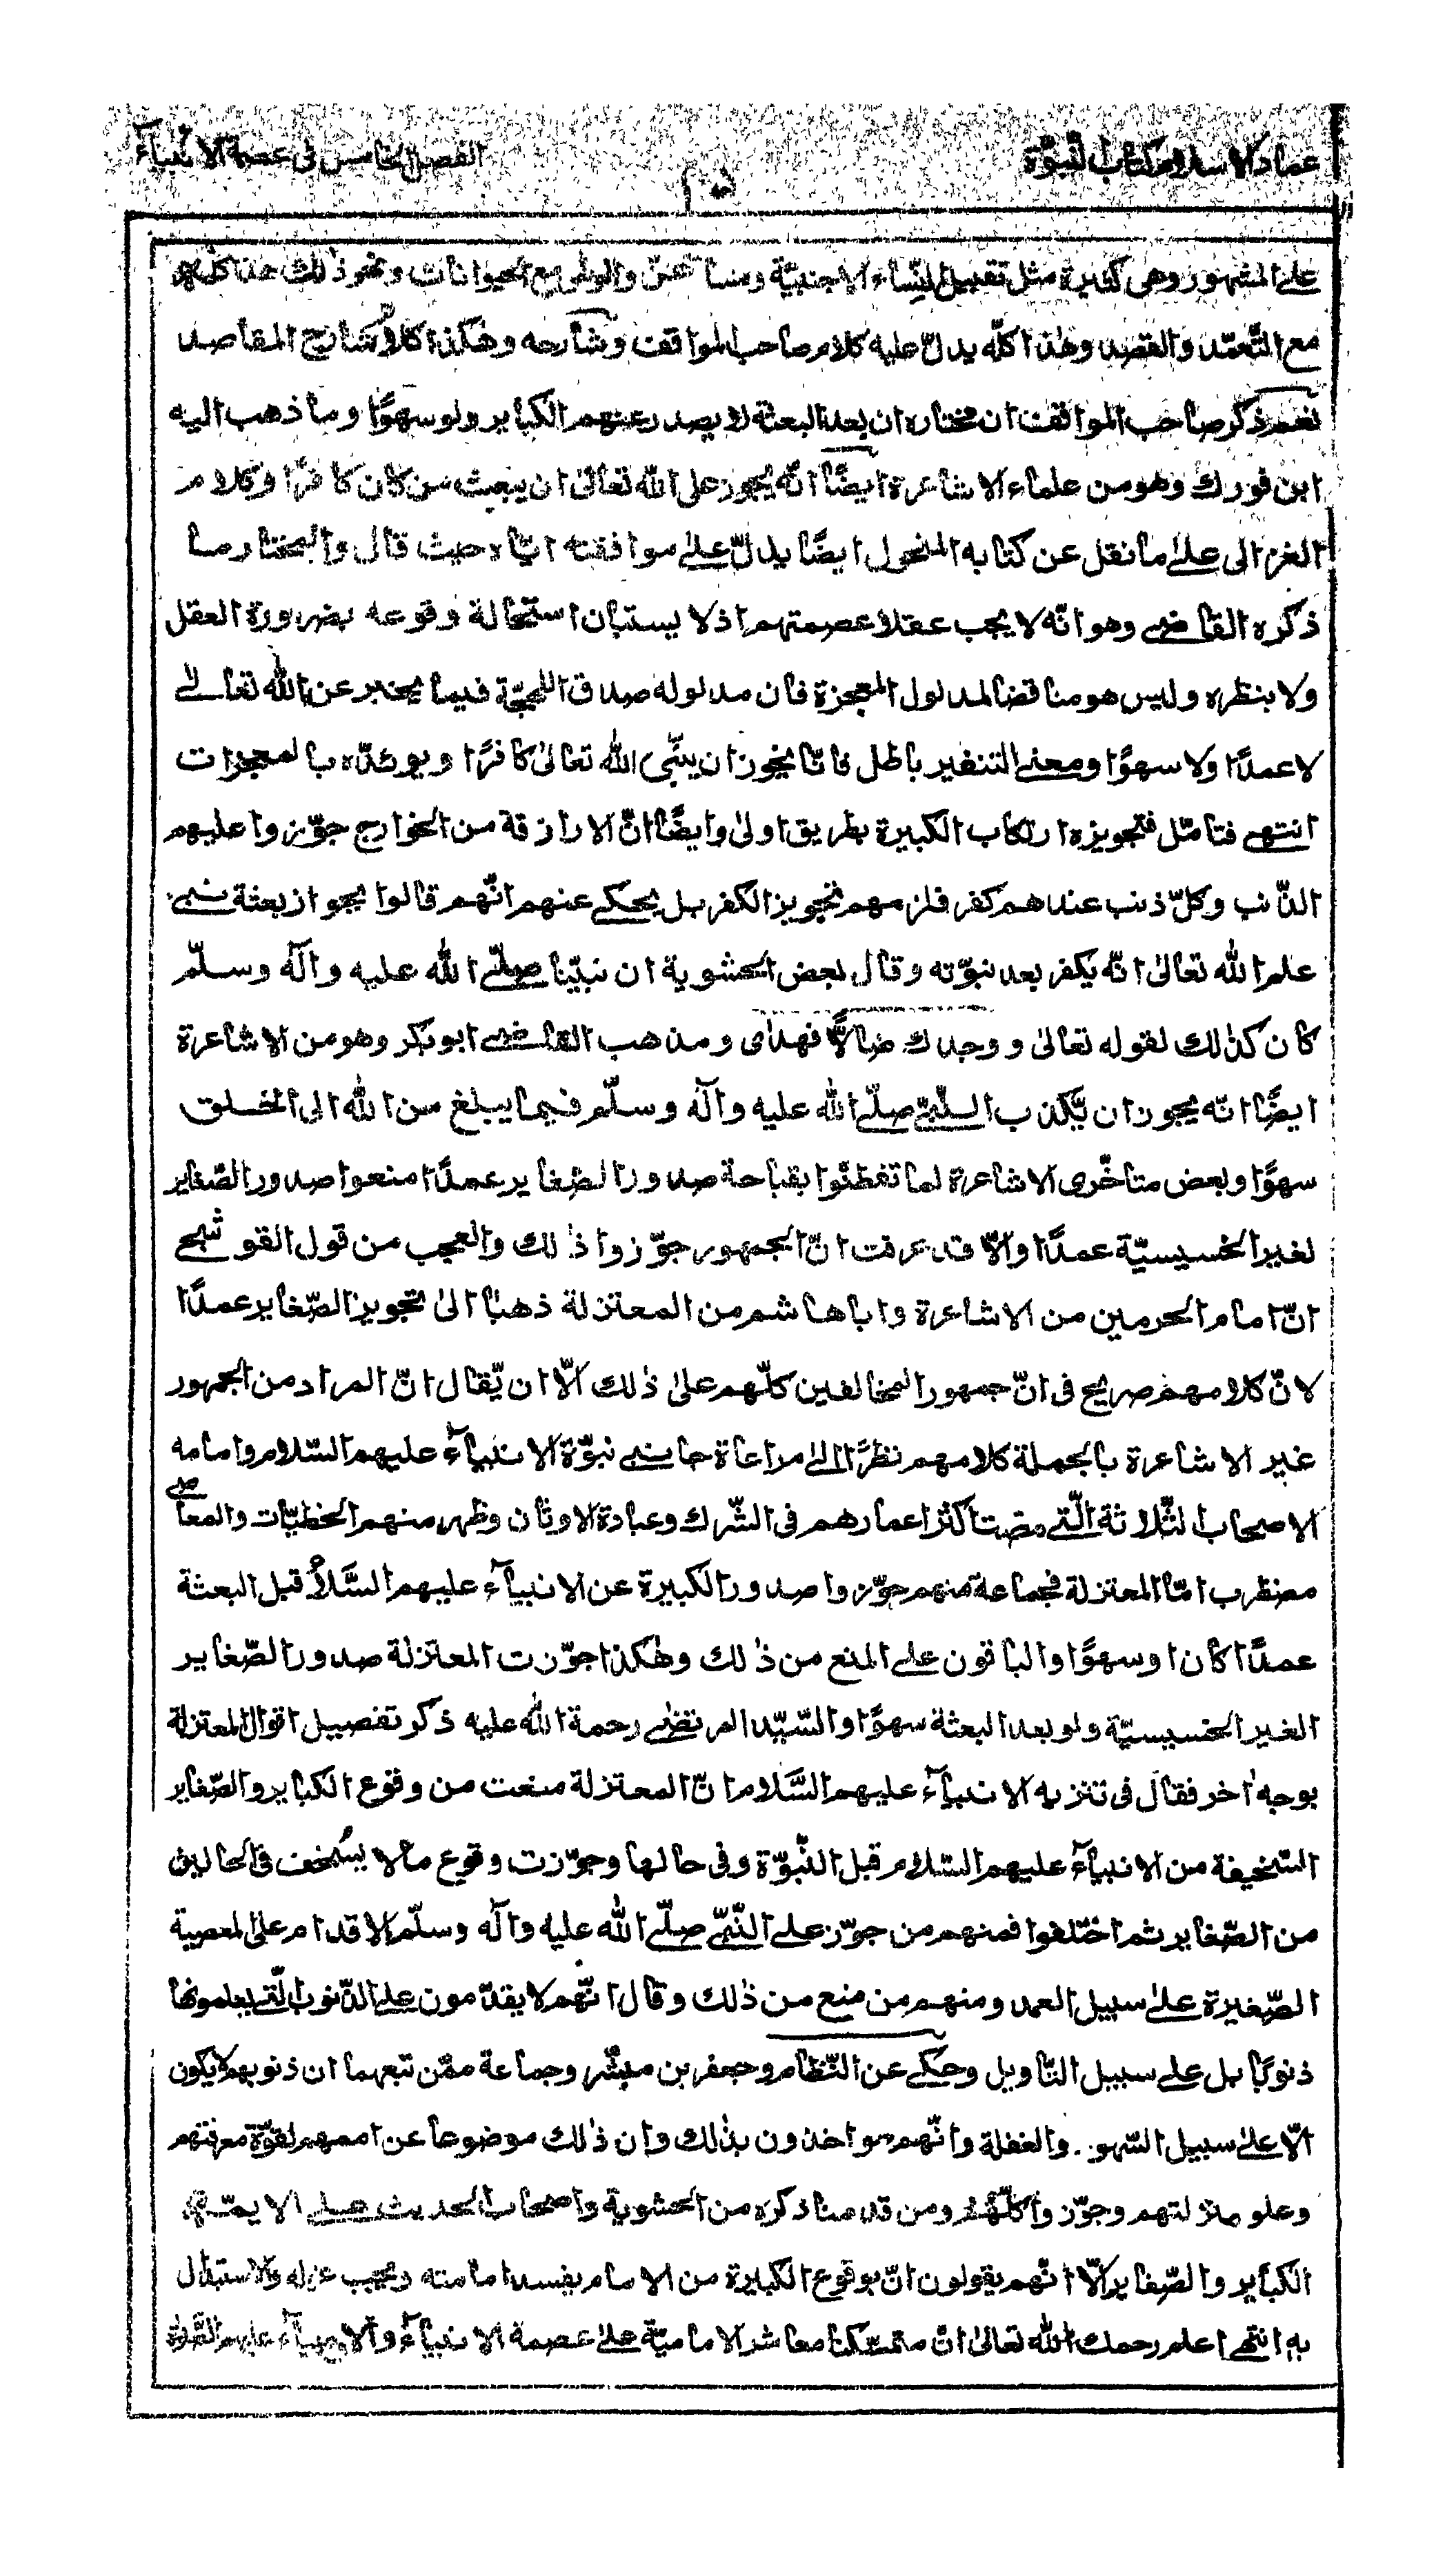 عماد الاسلام كتاب النبوّة
الفصل الخامس فى عصمة الانبيآء
على المشهور وهى كثيرة مثل تقبيل النّساء الاجنبيّة و والوطى مع الحيوانات ونحو ذلك هذا كله
مع التّعمّد والقصد وهذا كلّه يدلّ عليه كلام صاحب المواقف وشارحه وهكذا كلام شارح المقاصد
نعم ذكر صاحب المواقف ان مختاره ان بعد البعثة لا يصدر عنهم الكبأير ولو سهوًا وما ذهب اليه
ابن فورك وهو من علماء الاشاعرة ايضًا انّه يجوز على الله تعالىٰ ان يبعث من كان كافرًا وكلام
الغزالى علىٰ ما نقل عن كتابه المنحول ايضًا يدلّ علىٰ موافقته ايّاه حيث قال والمختار ما
ذكره القاضى وهو انّه لا يجب عقلا عصمتهم اذ لا يستبان استحالة وقوعه بضرورة العقل
ولا بنظره وليس هو مناقضا لمدلول المعجزة فان مدلوله صدق اللهجّة فيما يخبر عن الله تعالىٰ
لا عمدًا ولا سهوًا ومعنى التنفير باطل فانّا نجوز ان ينبّى الله تعالىٰ كافرًا ويوئدّه بالمعجزات
انتهى فتامّل فتجويزه ارتكاب الكبيرة بطريق اولىٰ وايضًا انّ الارازقة من الخوارج جوّزوا عليهم
الذّنب وكلّ ذنب عندهم كفر فلزمهم تجويز الكفر بل يحكى عنهم انّهم قالوا يجواز بعثة نبى
علم الله تعالىٰ انّه يكفر بعد نبوّته وقال بعض الحشوية ان نبيّنا صلّى الله عليه وآله وسلّم
كان كذٰلك لقوله تعالىٰ ووجدك ضالّا فهدٰى ومذهب القاضى ابوبكر وهو من الاشاعرة
ايضًا انّه يجوز ان يّكذب النّبىّ صلّى الله عليه وآله وسلّم فيما يبلغ من الله الى الخلق
سهوًا وبعض متاخّرى الاشاعرة لما تفطنّوا بقباحة صدور الصّغاير عمدًا منعوا صدور الصّغاير
لغير الخسيسيّة عمدًا والّا قد عرفت انّ الجمهور جوّزوا ذٰلك والعجب من قول القوشجى
انّ امام الحرمين من الاشاعرة واباهاشم من المعتزلة ذهبا الىٰ تجويز الصّغاير عمدًا
لانّ كلامهم صريح فى انّ جمهور المخالفين كلّهم علىٰ ذٰلك الّا ان يّقال انّ المراد من الجمهور
غير الاشاعرة بالجملة كلامهم نظرًا الىٰ مراعاة جانبى نبوّة الانبيآء عليهم السّلام وامامه
الاصحاب الثّلاثة الّتى مضت اكثر اعمارهم فى الشّرك وعبادة الاوثان وظهر منهم الخطيّات والمعاصى
مضطرب امّا المعتزلة فجماعة منهم جوّزوا صدور الكبيرة عن الانبيآء عليهم السّلام قبل البعثة
عمدًا كان او سهوًا والباقون على المنع من ذٰلك وهٰكذا جوّزت المعتزلة صدور الصّغاير
الغير الخسيسيّة ولو بعد البعثة سهوًا والسّيّد المرتضى رحمة الله عليه ذكر تفصيل اقوال المعتزلة
بوجه اٰخر فقال فى تنزيه الانبيآء عليهم السّلام انّ المعتزلة منعت من وقوع الكبأير والصّغاير
السّخيفة من الانبيآء عليهم السّلام قبل النّبوّة وفى حالها وجوّزت وقوع مالا يستخف فى الحالين
من الصّغاير ثم اختلفوا فمنهم من جوّز على النّبىّ صلّى الله عليه وآله وسلّم الاقدام على المعصية
الصّغيرة علىٰ سبيل العمد ومنهم من منع من ذٰلك وقال انّهم لا يقدّمون على الذّنوب الّتى يعلمونها
ذنوبًا بل على سبيل التّاويل وحكى عن النّظام وجعفر بن مبشّر وجماعة ممّن تبعهما ان ذنوبهم لا يكون
الّا علىٰ سبيل السّهو والغفلة وانّهم مواخذون بذٰلك وان ذٰلك موضوعا عن اممهم لقوّة معرفتهم
وعلو منزلتهم وجوّزوا كلّهم ومن قدمنا ذكره من الحشوية واصحاب الحديث على الايمّة
الكبأير والصّغاير الّا انّهم يقولون انّ بوقوع الكبيرة من الامام يفسد امامته ويجب عزله والاستبدال
به انتهى اعلم رحمك الله تعالىٰ انّ متمسّكنا معاشر الاماميّة علىٰ عصمة الانبيآء والاوصيآء عليهم السّلام